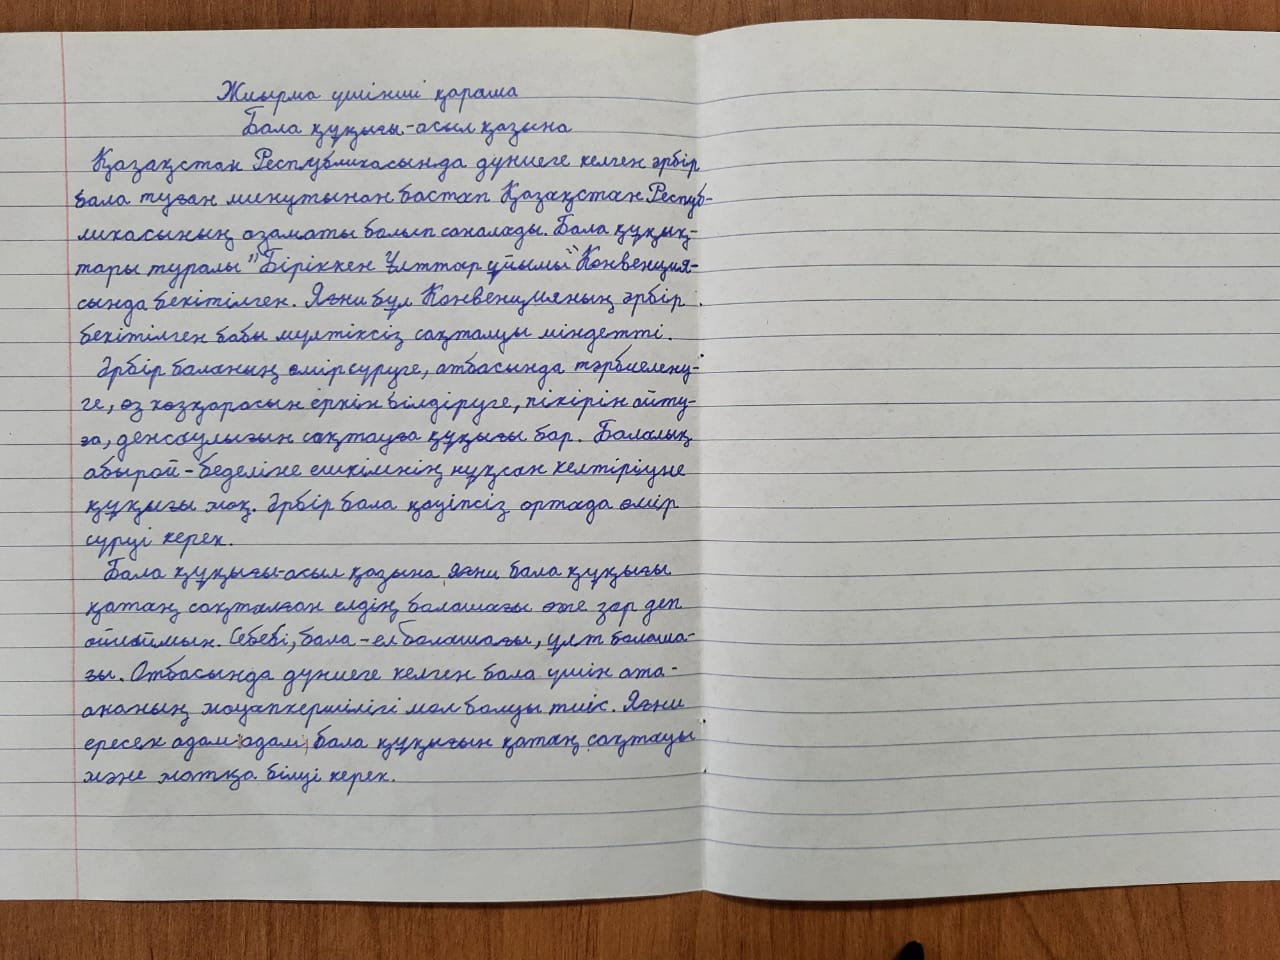 Жиырма үшінші қараша
Бала құқығы-асыл қазына
Қазақстан Республикасында дүниеге келген әрбір
бала туған минутынан бастап Қазақстан Респуб-
ликасының азаматы болып саналады. Бала құқық-
тары туралы "Біріккен Ұлттар ұйымы" Конвенция-
сында бекітілген. Яғни бұл Конвенцияның әрбір
бекітілген бабы мүлтіксіз сақталуы міндетті.
Әрбір баланың өмір сүруге, отбасында тәрбиелену-
ге, өз көзқарасын еркін білдіруге, пікірін айту-
ға, денсаулығын сақтауға құқығы бар. Балалық
абырой-беделіне ешкімнің нұқсан келтіріуне
құқығы жоқ. Әрбір бала қауіпсіз ортада өмір
сүруі керек.
Бала құқығы-асыл қазына, яғни бала құқығы
қатаң сақталған елдің балашағы өте зор деп
ойлаймын. Себебі, бала-ел болашағы, ұлт болаша-
ғы. Отбасында дүниеге келген бала үшін ата-
ананың жауапкершілігі мол болуы тиіс. Яғни
ересек адам адам, бала құқығын қатаң сақтауы
және жатқа білуі керек.